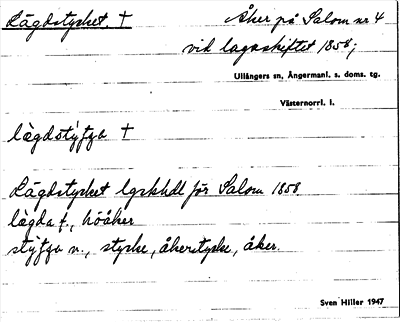 Lägdstycket † Åker på Salom nr 4
vid lagaskiftet 1858;
Ullångers sn, Ångermanl. s. doms. tg.
Västernorrl. l.
lägdstýʃʒa †
Lägdstycket lgskhdl för Salom 1858.
lägda f., höåker
stýʃʒa n., stycke, åkerstycke, åker.
Sven Hiller 1947